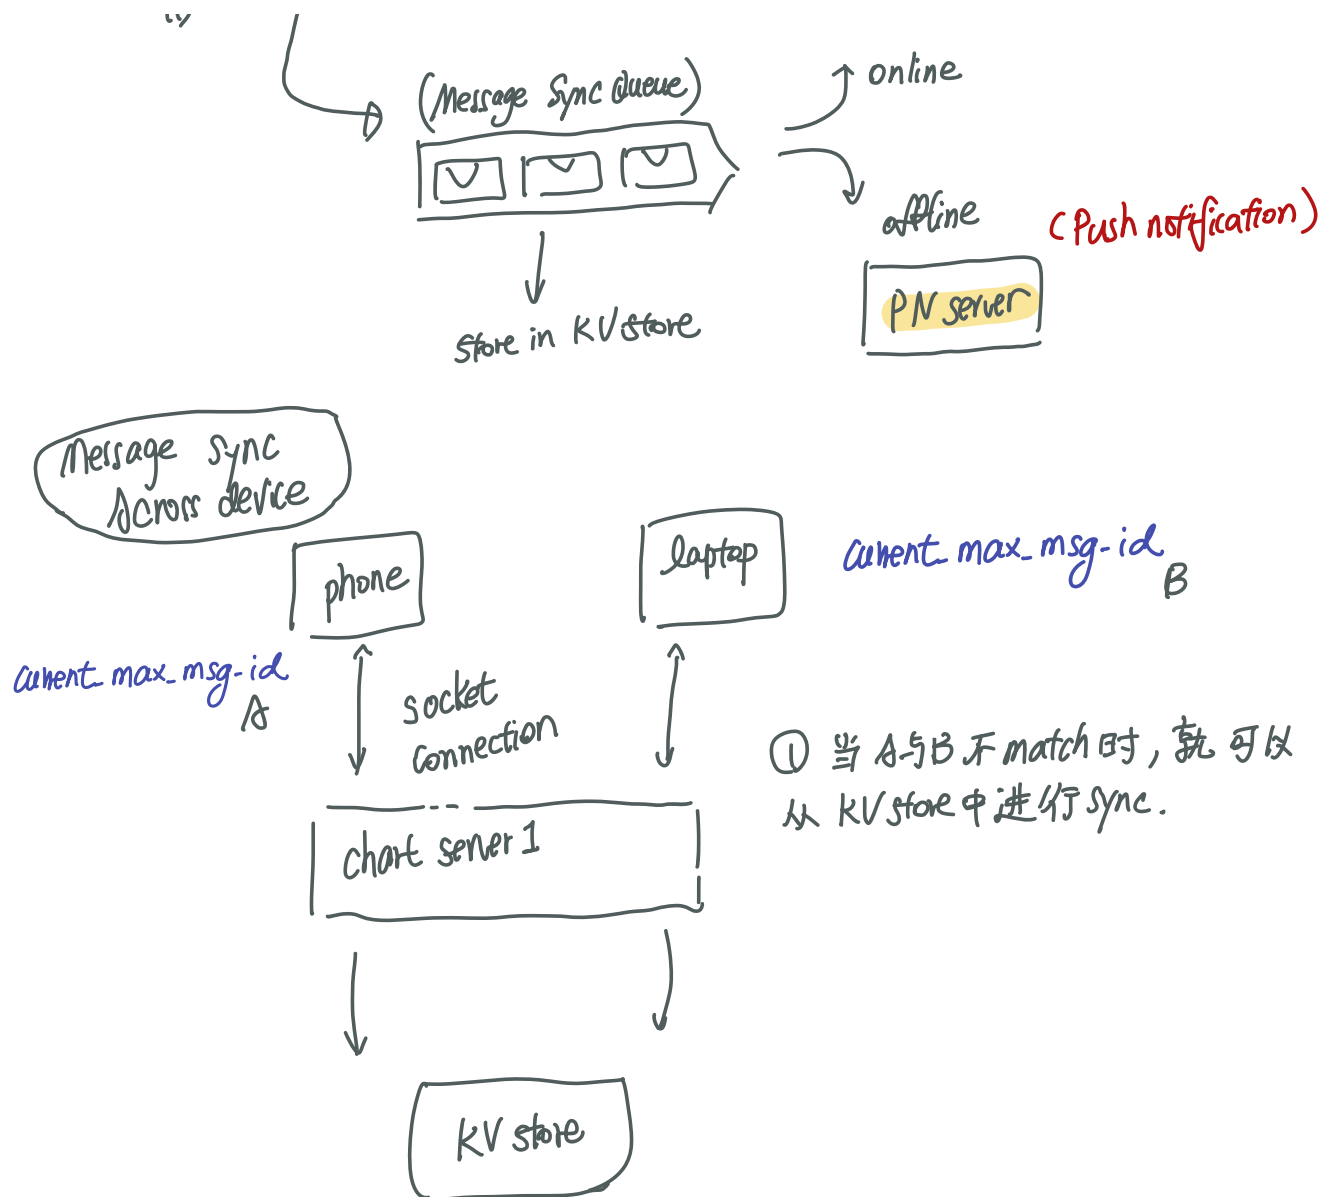 (Message Sync Queue)
online
offline
(Push notification)
PN server
store in KV store
Message Sync
Across device
phone
laptop
current_max_msg-id
B
current_max_msg-id
A
socket
connection
① 当A与B不match时，就可以
从KV store中进行sync.
chart server 1
KV store